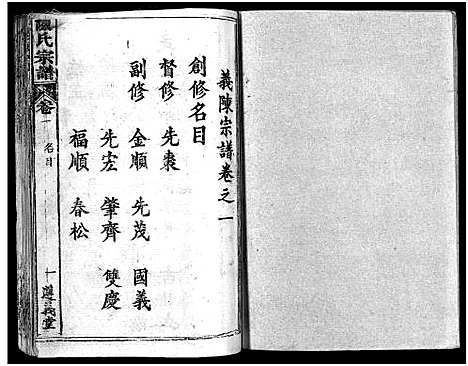 義陳宗譜卷之一
創修名目
督修 先棗
副修 金順 先茂 國義
先宏 肇齊 雙慶
福順 春松
氏宗譜
卷一 名目
一 遵義堂